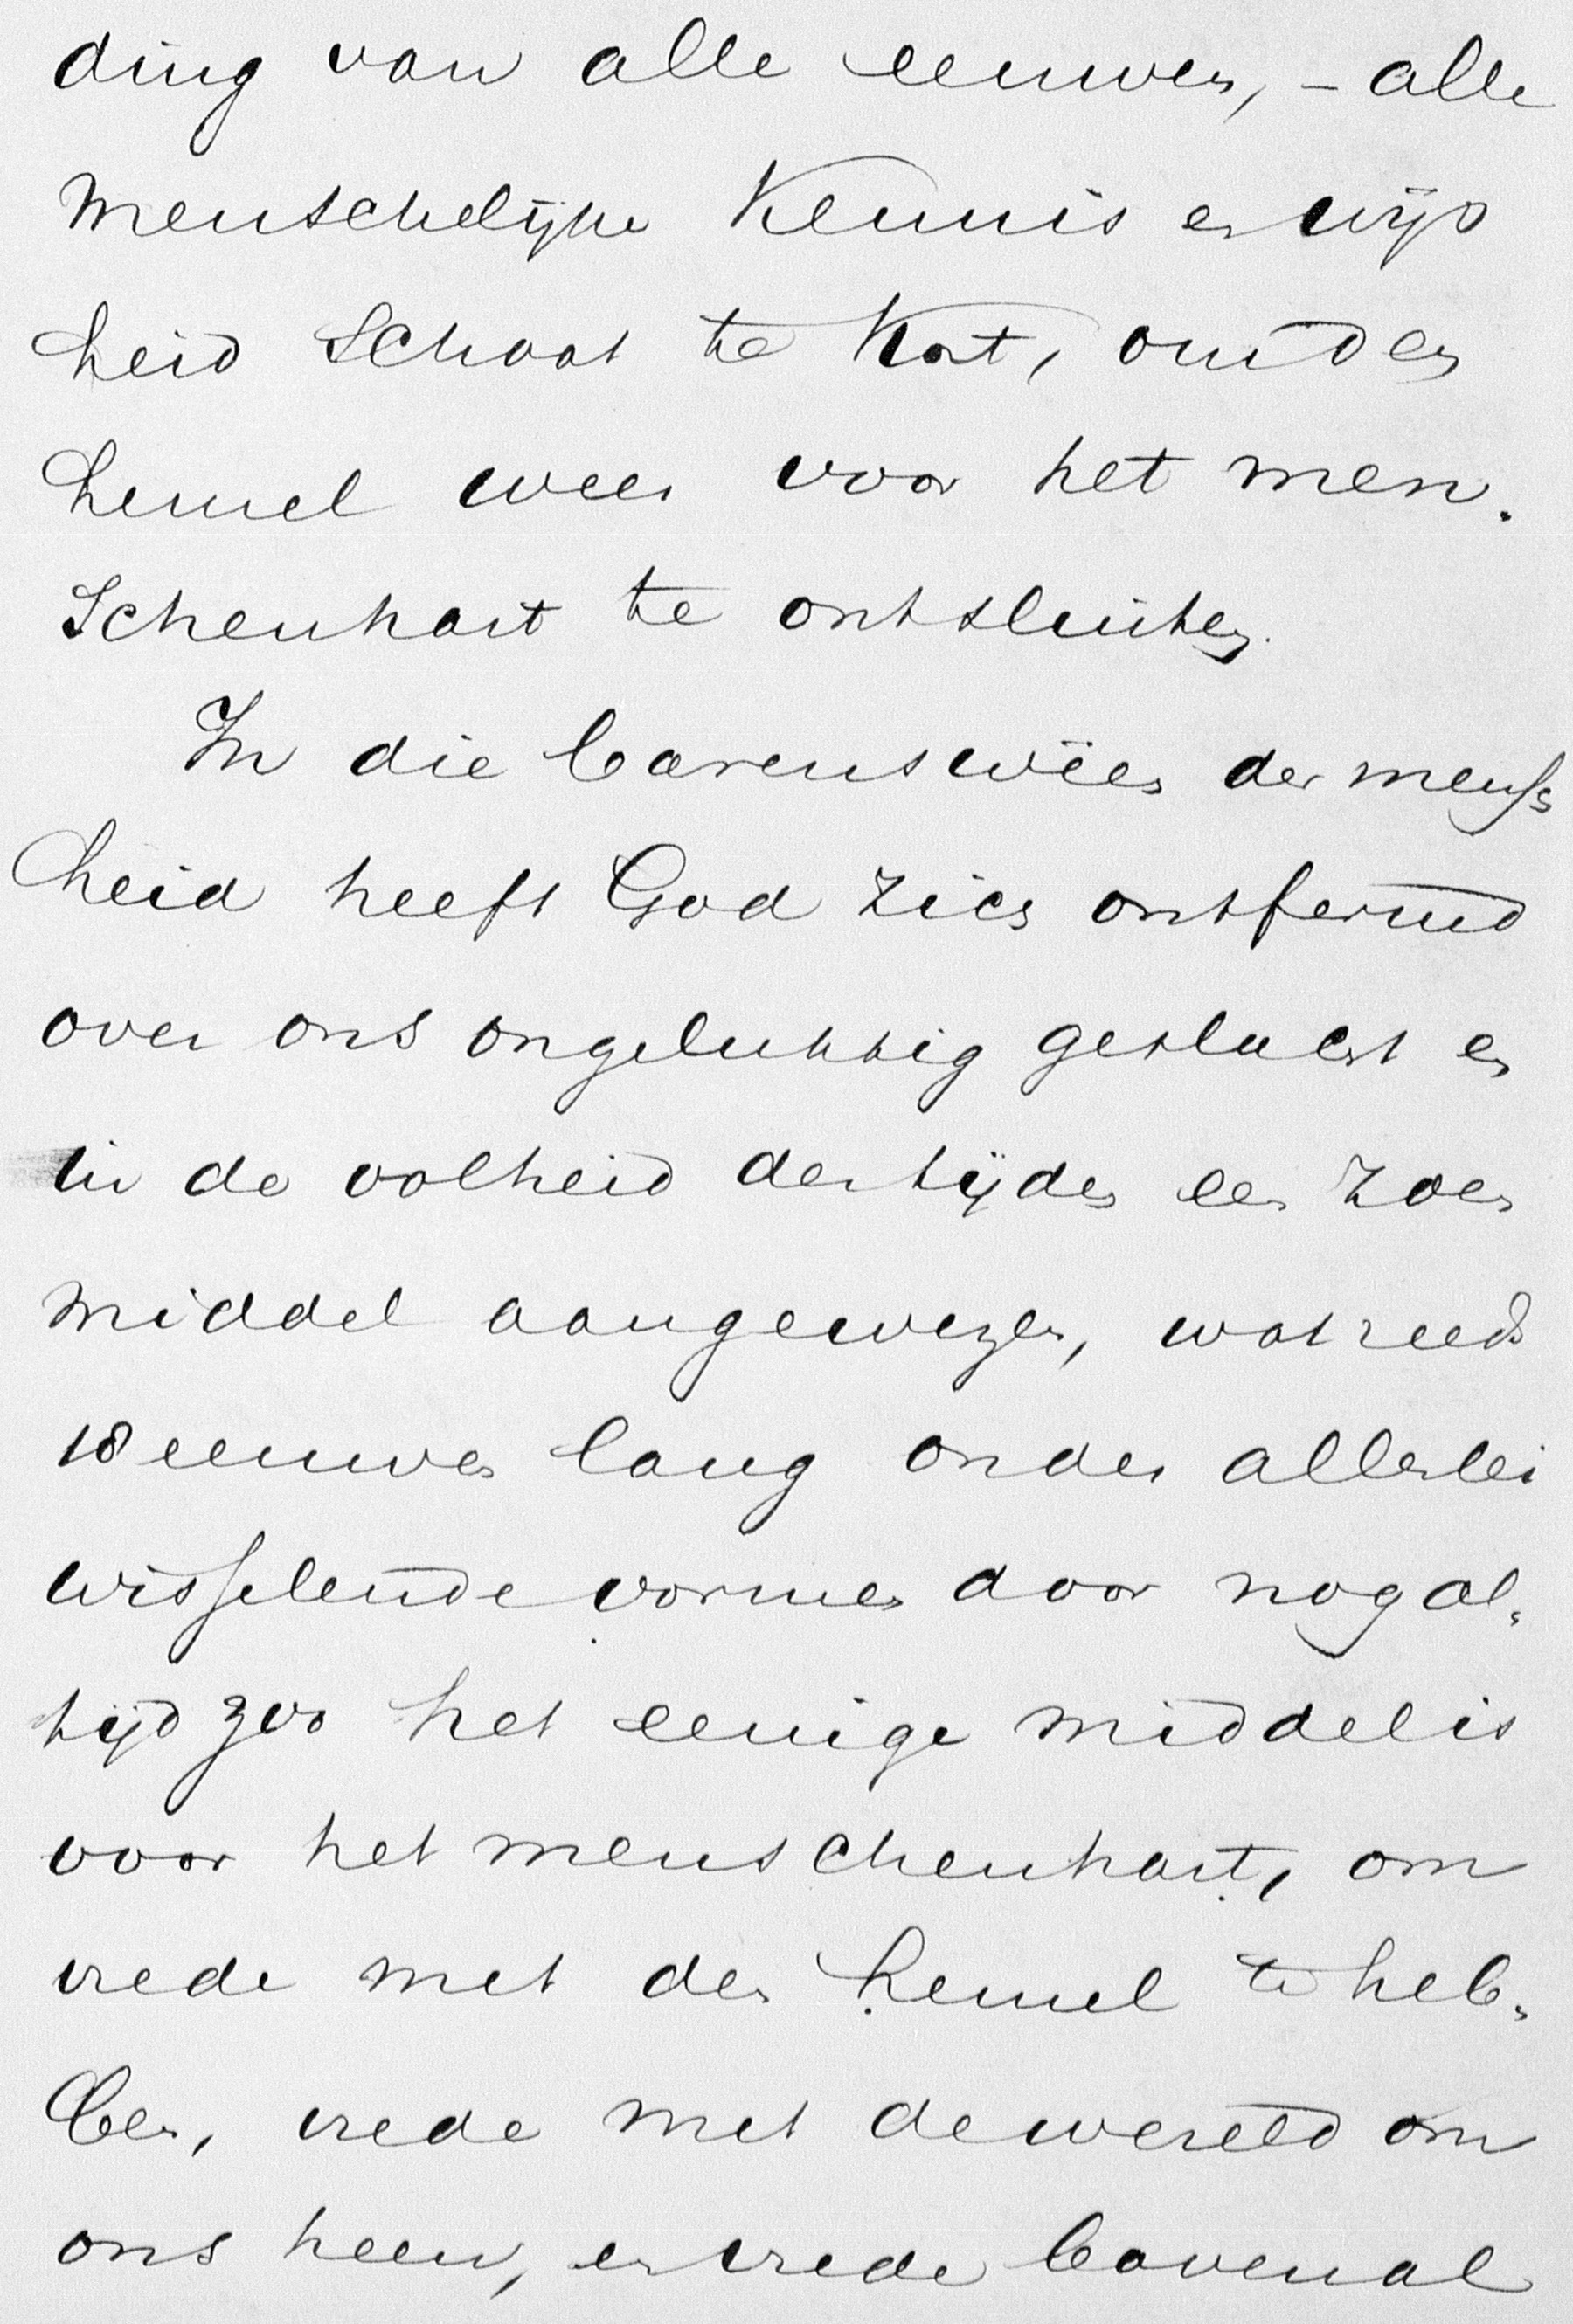 ding van alle eeuwen, - alle
menschelijke kennis en wijs
heid schoot te kort, om den
hemel weer voor het men-
schenhart te ontsluiten.
In die barensweeën der mensch
heid heeft God zich ontfermd
over ons ongelukkig geslacht en
in de volheid der tijden een zoen
middel aangewezen, wat reeds
18 eeuwen lang onder allerlei
wisselende vormen door nog al-
tijd zoo het eenige middel is
voor het menschenhart, om
vrede met den hemel te heb-
ben, vrede met de wereld om
ons heen, en vrede bovenal